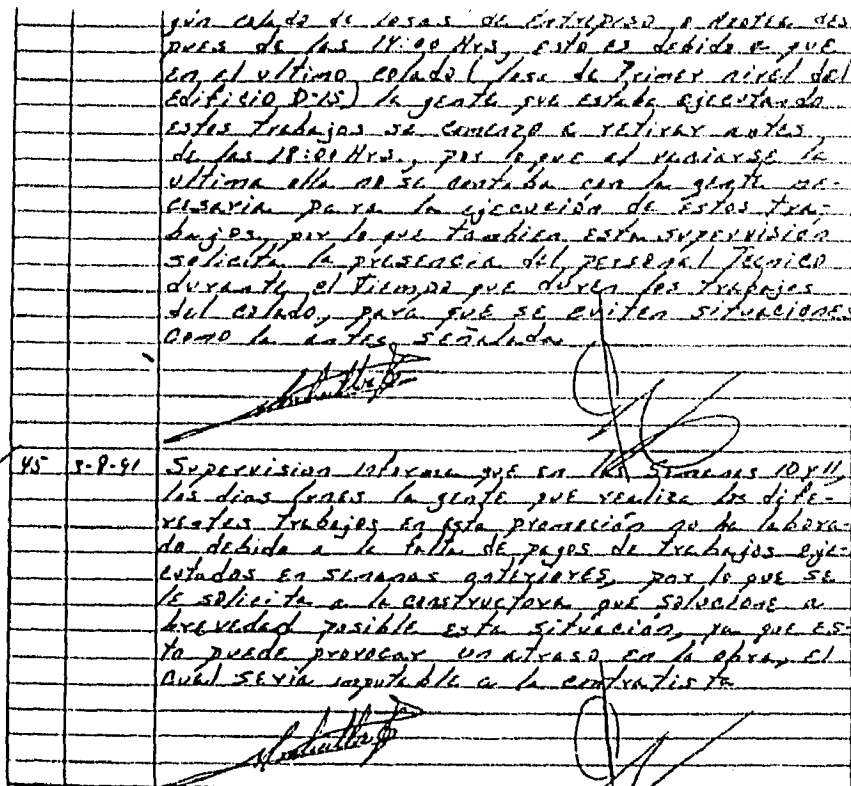 gún colado de losas de Entrepiso o Azotea des
pues de las 14:00 Hrs, esto es debido a que
en el ultimo colado (losa de Primer nivel del
Edificio D-15) la gente que estaba ejecutando
estos trabajos se comenzo a retirar antes
de las 18:00 Hrs., por lo que al vaciarse la
ultima olla no se contaba con la gente ne-
cesaria para la ejecución de Estos tra-
bajos, por lo que tambien esta supervision
solicita la presencia del personal Tecnico
durante el Tiempo que duren los trabajos
del colado, para que se eviten situaciones
como la antes señalada
45 3-8-91 Supervision informa que en las Semanas 10 y 11,
los dias lunes la gente que realiza los dife-
rentes trabajos en esta promoción no ha labora-
do debido a la falta de pagos de trabajos eje-
cutados en semanas anteriores, por lo que se
le solicita a la constructora que solucione a
brevedad posible esta situación, ya que es-
to puede provocar un atraso en la obra, El
cual seria imputable a la contratista